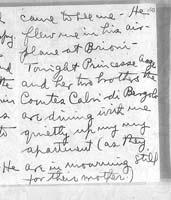 came to see me - He
flew me in his air-
plane at Brioni -
Tonight Princesse Aage
and her two brothers the
Comtes Calvi di Bergolo
are dining with me
quietly up my
apartment (as they
are in mourning still
for their mother.)
He